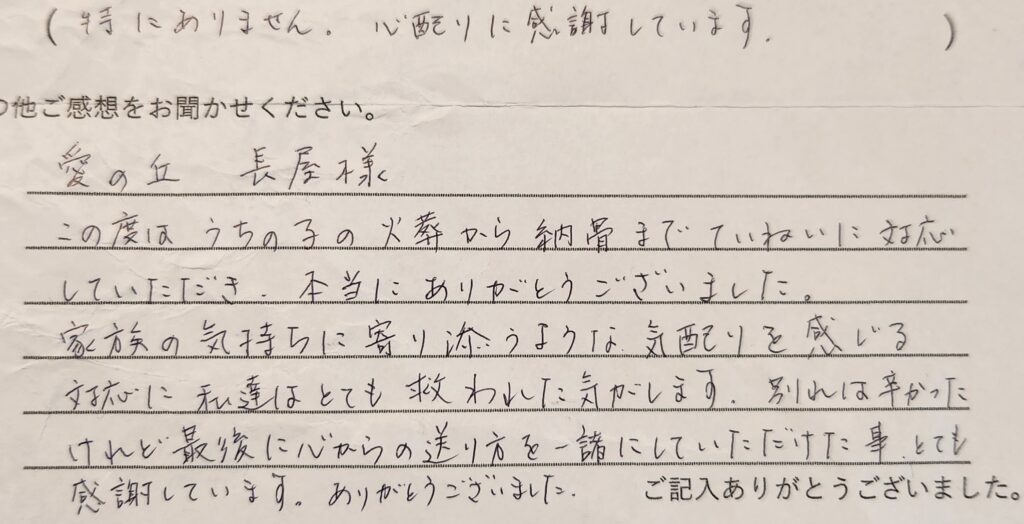 (特にありません。心配りに感謝しています。)
の他ご感想をお聞かせください。
愛の丘 長屋様
この度はうちの子の火葬から納骨までていねいに対応
していただき、本当にありがとうございました。
家族の気持ちに寄り添うような気配りを感じる
対応に私達はとても救われた気がします。別れは辛かった
けれど最後に心からの送り方を一諸にしていただけた事、とても
感謝しています。ありがとうございました。
ご記入ありがとうございました。